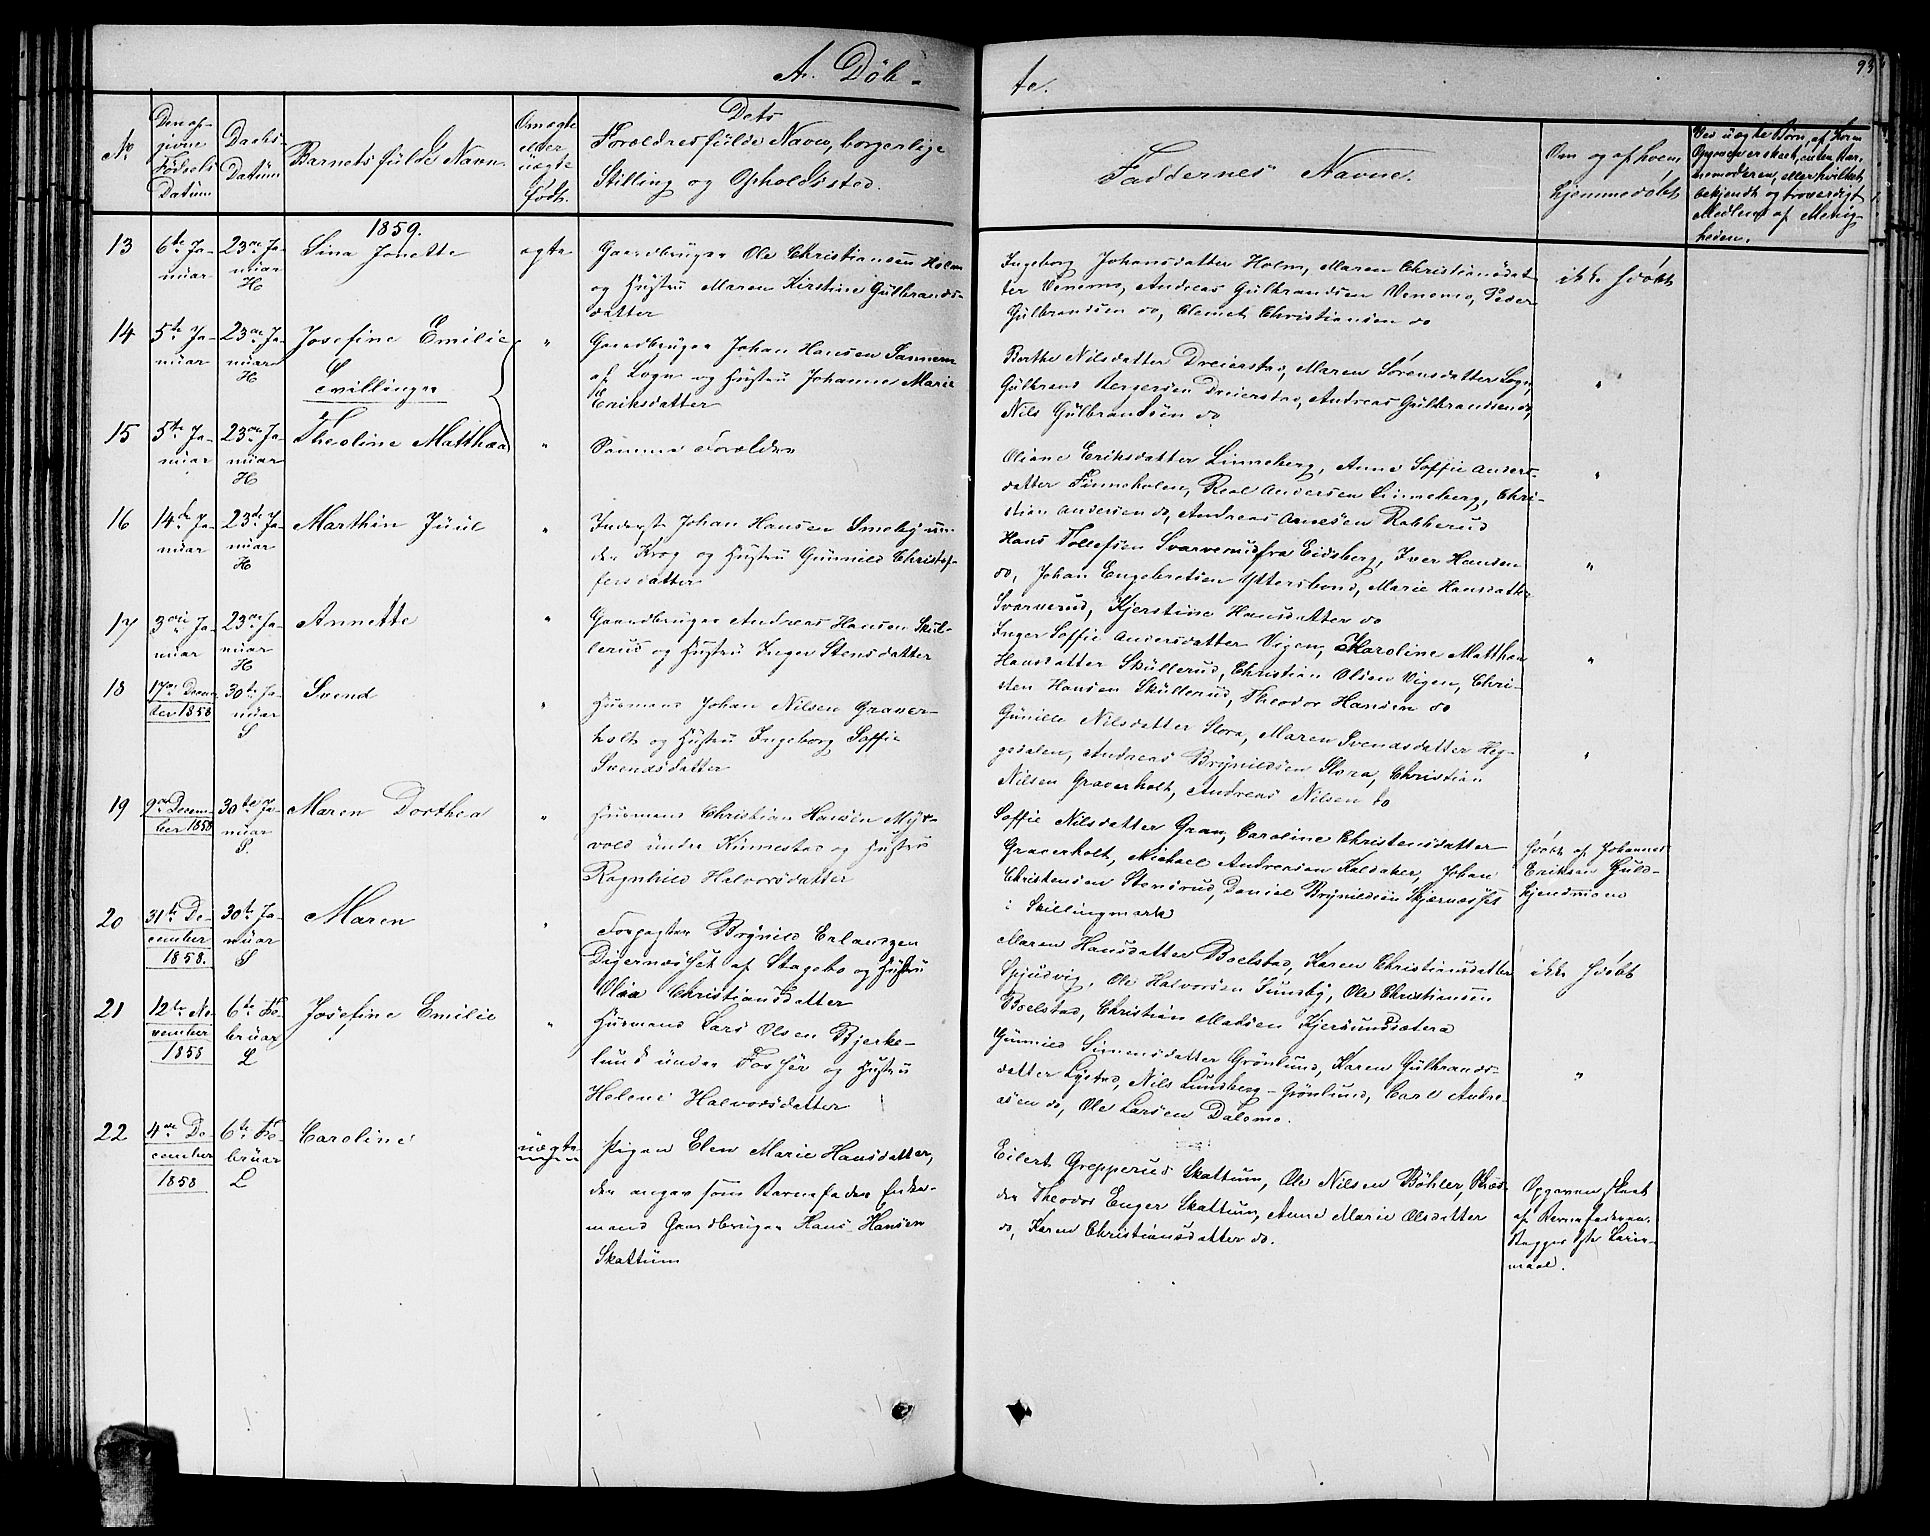 A. Döb-
te.
93
No
Den op-
givne
Födsels
Datum
Daabs-
Datum
Barnets fulde Navn.
Om ægte
eller
uægte
födt.
Dets
Forældres fulde Navn, borgerlige
Stilling og Opholdssted.
Faddernes Navne.
Om og af hvem
hjemmedöbt
Ved uægte Börn, af hvem
Opgaven er skeet, enten Bar-
nemoderen, eller hvilket
bekjendt og troværdigt
Medlem af Menig-
heden.
1859.
13
6te Ja-
nuar
23de Ja-
nuar
H
Lina Jonette
ægte
Gaardbruger Ole Christiansen Holm
og Hustru Maren Kirstine Gulbrands-
datter
Ingeborg Johansdatter Holm, Maren Christiansdat-
ter Venemo, Andreas Gulbrandsen Venemo, Peder
Gulbrandsen do, Clemet Christiansen do
ikke hjdöbt
14
5te Ja-
nuar
23de Ja-
nuar
H
Josefine Emilie
Tvillinger
"
Gaardbruger Johan Hansen Sannem
af Sogn og Hustru Johanne Marie
Eriksdatter
Berthe Nilsdatter Dreierstad, Maren Sörensdatter Sogn,
Gulbrand Bergersen Dreierstad, Andreas Gulbrandsen do,
Nils Gulbrandsen do.
"
15
5te Ja-
nuar
23de Ja-
nuar
H
Theoline Matthea
"
Samme Forældre
Oliane Eriksdatter Linneberg, Anne Soffie Anders-
datter Finneholen, Real Andersen Linneberg, Chri-
stian Andersen do, Andreas Arnesen Rakkerud
"
16
14de Ja-
nuar
23de Ja-
nuar
H
Marthin Juul
"
Inderst Johan Hansen Smeby un-
der Krog og Hustru Gunnild Christof-
fersdatter
Hans Tollefsen Svarverud fra Eidsberg, Iver Hansen
do, Johan Engebretsen Yttersbond, Marie Hansdatter
Svarverud, Kjerstine Hansdatter do
"
17
3die Ja-
nuar
23de Ja-
nuar
H
Annette
"
Gaardbruger Andreas Hansen Skul-
lerud og Hustru Inger Stensdatter
Inger Soffie Andersdatter Vigen, Karoline Matthea
Hansdatter Skullerud, Christian Olsen Vigen, Chri-
sten Hansen Skullerud, Theodor Hansen do
"
18
17de Decem-
ber 1858
30te Ja-
nuar
S
Svend
"
Husmand Johan Nilsen Graver-
holt og Hustru Ingeborg Soffie
Svendsdatter
Gunille Nilsdatter Slora, Maren Svendsdatter Heg-
gedalen, Andreas Brynildsen Slora, Christian
Nilsen Graverholt, Andreas Nilsen do
"
19
9de Decem-
ber 1858
30te Ja-
nuar
S.
Maren Dorthea
"
Husmand Christian Hansen Myr-
vold under Kinnestad og Hustru
Ragnhild Halvorsdatter
Soffie Nilsdatter Gran, Caroline Christensdatter
Graverholt, Michael Andreasen Kaldaker, Johan
Christensen Stensrud, Daniel Brynildsen Skjærnæsset
i Skillingmark
hjdöbt af Johannes
Eriksen Huld-
kjendmoen
20
31te De-
cember
1858.
30te Ja-
nuar
S
Maren
"
Forpagter Brynild Erlandsen
Digernæsset af Stagebo og Hustru
Olea Christiansdatter
Maren Hansdatter Boelstad, Karen Christiansdatter
Spjudvig, Ole Halvorsen Sundby, Ole Christiansen
Boelstad, Christian Madsen Kjersundsætera
ikke hjdöbt
21
12te No-
vember
1858
6te Fe-
bruar
L
Josefine Emilie
"
Husmand Lars Olsen Bjerke-
lund under Fossör og Hustru
Helene Halvorsdatter
Gunnild Simensdatter Grönlund, Karen Gulbrands-
datter Lystad, Nils Lundberg-Grönlund, Carl Andre-
asen do, Ole Larsen Dalomo.
"
22
4de De-
cember
1858
6te Fe-
bruar
L
Caroline
uægte
Pigen Elen Marie Hansdatter,
der angav som Barnefader Enke-
mand Gaardbruger Hans Hansen
Skattum
Eilert Grepperud Skattum, Ole Nilsen Böhler, Peder
Theodor Enger Skattum, Anne Marie Olsdatter
do, Karen Christiansdatter do.
Opgaven skeet
af Barnefaderen.
Begges 1ste Leier-
maal.